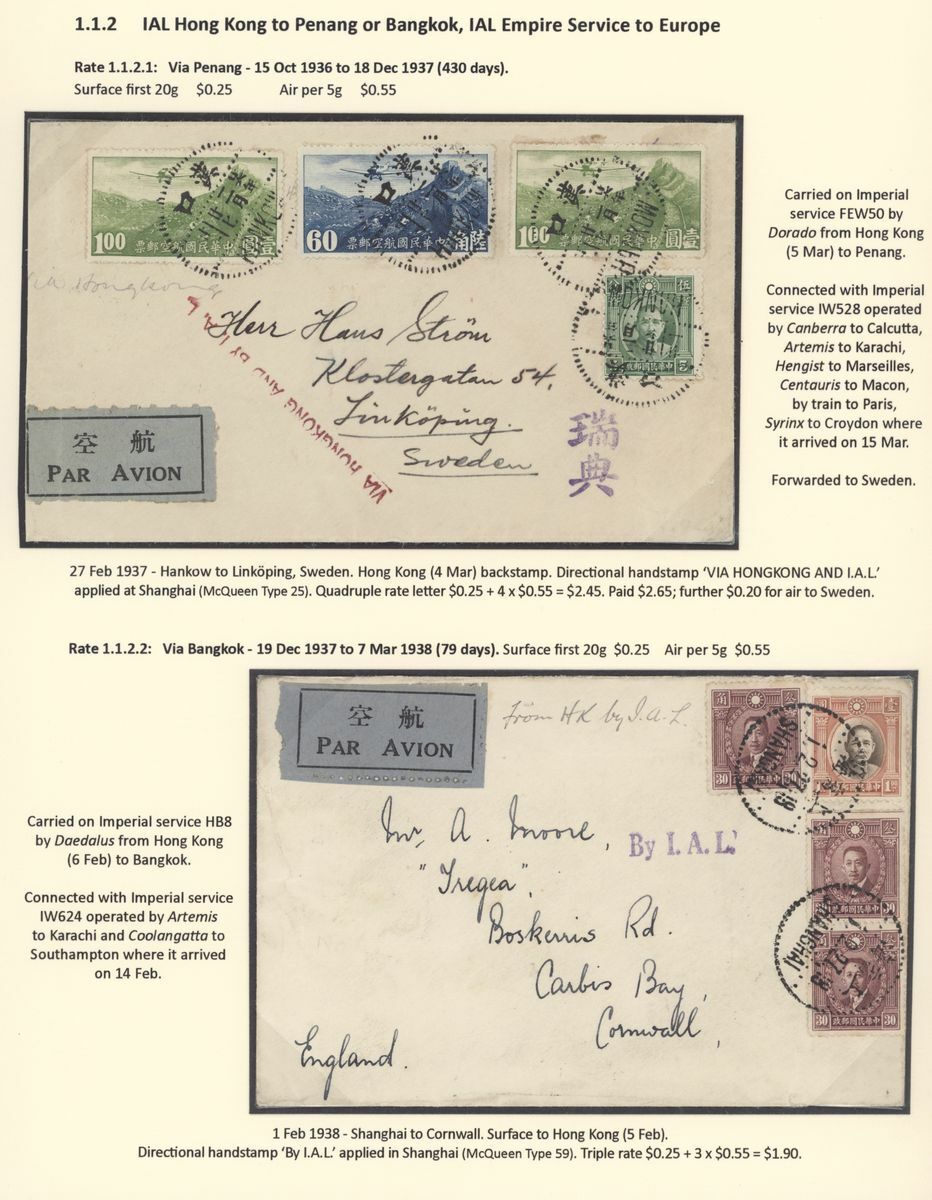 1.1.2 IAL Hong Kong to Penang or Bangkok, IAL Empire Service to Europe
Rate 1.1.2.1: Via Penang - 15 Oct 1936 to 18 Dec 1937 (430 days).
Surface first 20g $0.25 Air per 5g $0.55
1.00 票郵空航國民華中 圓壹
60 票郵空航國民華中 角陸
1.00 票郵空航國民華中 圓壹
口 漢
口 漢
口 漢
HANKOW
via Hongkong
5
政郵國民華中
Herr Hans Ström
Klostergatan 54,
Linköping.
Sweden
VIA HONGKONG AND BY I. A. L.
空 航
PAR AVION
瑞
典
Carried on Imperial
service FEW50 by
Dorado from Hong Kong
(5 Mar) to Penang.
Connected with Imperial
service IW528 operated
by Canberra to Calcutta,
Artemis to Karachi,
Hengist to Marseilles,
Centauris to Macon,
by train to Paris,
Syrinx to Croydon where
it arrived on 15 Mar.
Forwarded to Sweden.
27 Feb 1937 - Hankow to Linköping, Sweden. Hong Kong (4 Mar) backstamp. Directional handstamp ‘VIA HONGKONG AND I.A.L.’
applied at Shanghai (McQueen Type 25). Quadruple rate letter $0.25 + 4 x $0.55 = $2.45. Paid $2.65; further $0.20 for air to Sweden.
Rate 1.1.2.2: Via Bangkok - 19 Dec 1937 to 7 Mar 1938 (79 days). Surface first 20g $0.25 Air per 5g $0.55
空 航
PAR AVION
from HK by I.A.L.
30 政郵國民華中 30
SHANGHAI
政郵國民華中
30 政郵國民華中 30
SHANGHAI
30 政郵國民華中 30
Mr, A. Moore,
By I. A.L.
"Tregea",
Boskerris Rd.
Carbis Bay,
Cornwall,
England.
Carried on Imperial service HB8
by Daedalus from Hong Kong
(6 Feb) to Bangkok.
Connected with Imperial service
IW624 operated by Artemis
to Karachi and Coolangatta to
Southampton where it arrived
on 14 Feb.
1 Feb 1938 - Shanghai to Cornwall. Surface to Hong Kong (5 Feb).
Directional handstamp ‘By I.A.L.’ applied in Shanghai (McQueen Type 59). Triple rate $0.25 + 3 x $0.55 = $1.90.